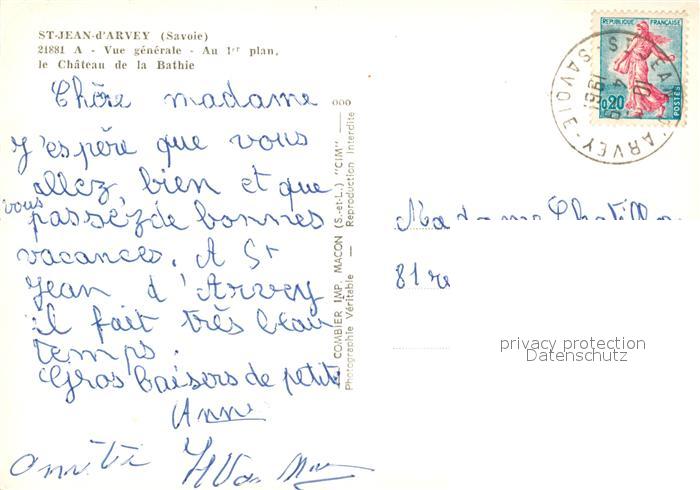 ST-JEAN-d'ARVEY (Savoie)
21881 A - Vue générale - Au 1er plan,
le Château de la Bathie
Chère madame
J'espère que vous
allez bien et que
vous passez de bonnes
vacances. A St
Jean d'Arvey
il fait très beau
temps.
Gros baisers de petite
Anne
amitié
COMBIER IMP. MACON (S.-et-L.) "CIM"
Photographie Véritable — Reproduction Interdite
REPUBLIQUE FRANÇAISE
0,20
POSTES
ST JEAN D'ARVEY
SAVOIE
Madame
81 re
privacy protection
Datenschutz